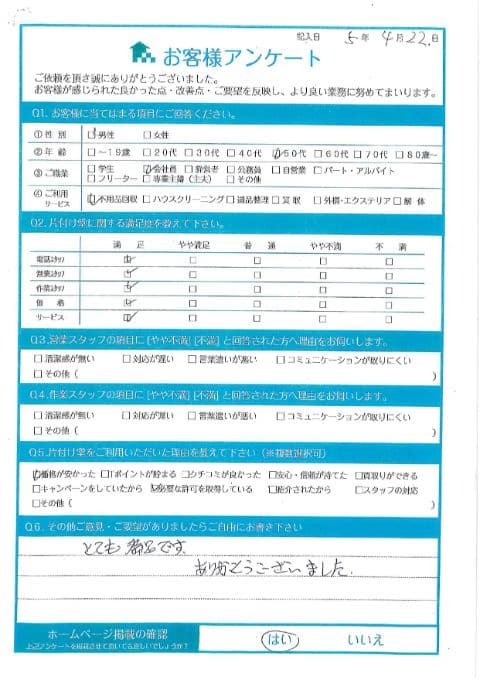 記入日 5年 4月22.日
お客様アンケート
ご依頼を頂き誠にありがとうございました。
お客様が感じられた良かった点・改善点・ご要望を反映し、より良い業務に努めてまいります。
Q1. お客様に当てはまる項目にご回答ください。
①性 別 □男性 □女性
②年 齢 □～19歳 □20代 □30代 □40代 □50代 □60代 □70代 □80歳～
③ご職業 □学生 □会社員 □経営者 □公務員 □自営業 □パート・アルバイト
□フリーター □専業主婦（主夫） □その他
④ご利用サービス □不用品回収 □ハウスクリーニング □遺品整理 □買 取 □外構・エクステリア □解 体
Q2. 片付け堂に関する満足度を教えて下さい。
満 足 やや満足 普 通 やや不満 不 満
電話スタッフ □ □ □ □ □
営業スタッフ □ □ □ □ □
作業スタッフ □ □ □ □ □
価 格 □ □ □ □ □
サービス □ □ □ □ □
Q3. 営業スタッフの項目に [やや不満] [不満] と回答された方へ理由をお伺いします。
□清潔感が無い □対応が遅い □言葉遣いが悪い □コミュニケーションが取りにくい
□その他（ ）
Q4. 作業スタッフの項目に [やや不満] [不満] と回答された方へ理由をお伺いします。
□清潔感が無い □対応が遅い □言葉遣いが悪い □コミュニケーションが取りにくい
□その他（ ）
Q5. 片付け堂をご利用いただいた理由を教えて下さい（※複数選択可）
□価格が安かった □Tポイントが貯まる □クチコミが良かった □安心・信頼が持てた □買取りができる
□キャンペーンをしていたから □必要な許可を取得している □紹介されたから □スタッフの対応
□その他（ ）
Q6. その他ご意見・ご要望がありましたらご自由にお書き下さい
とても です。
ありがとうございました.
ホームページ掲載の確認
上記アンケートを掲載させて頂いても宜しいでしょうか？
はい いいえ